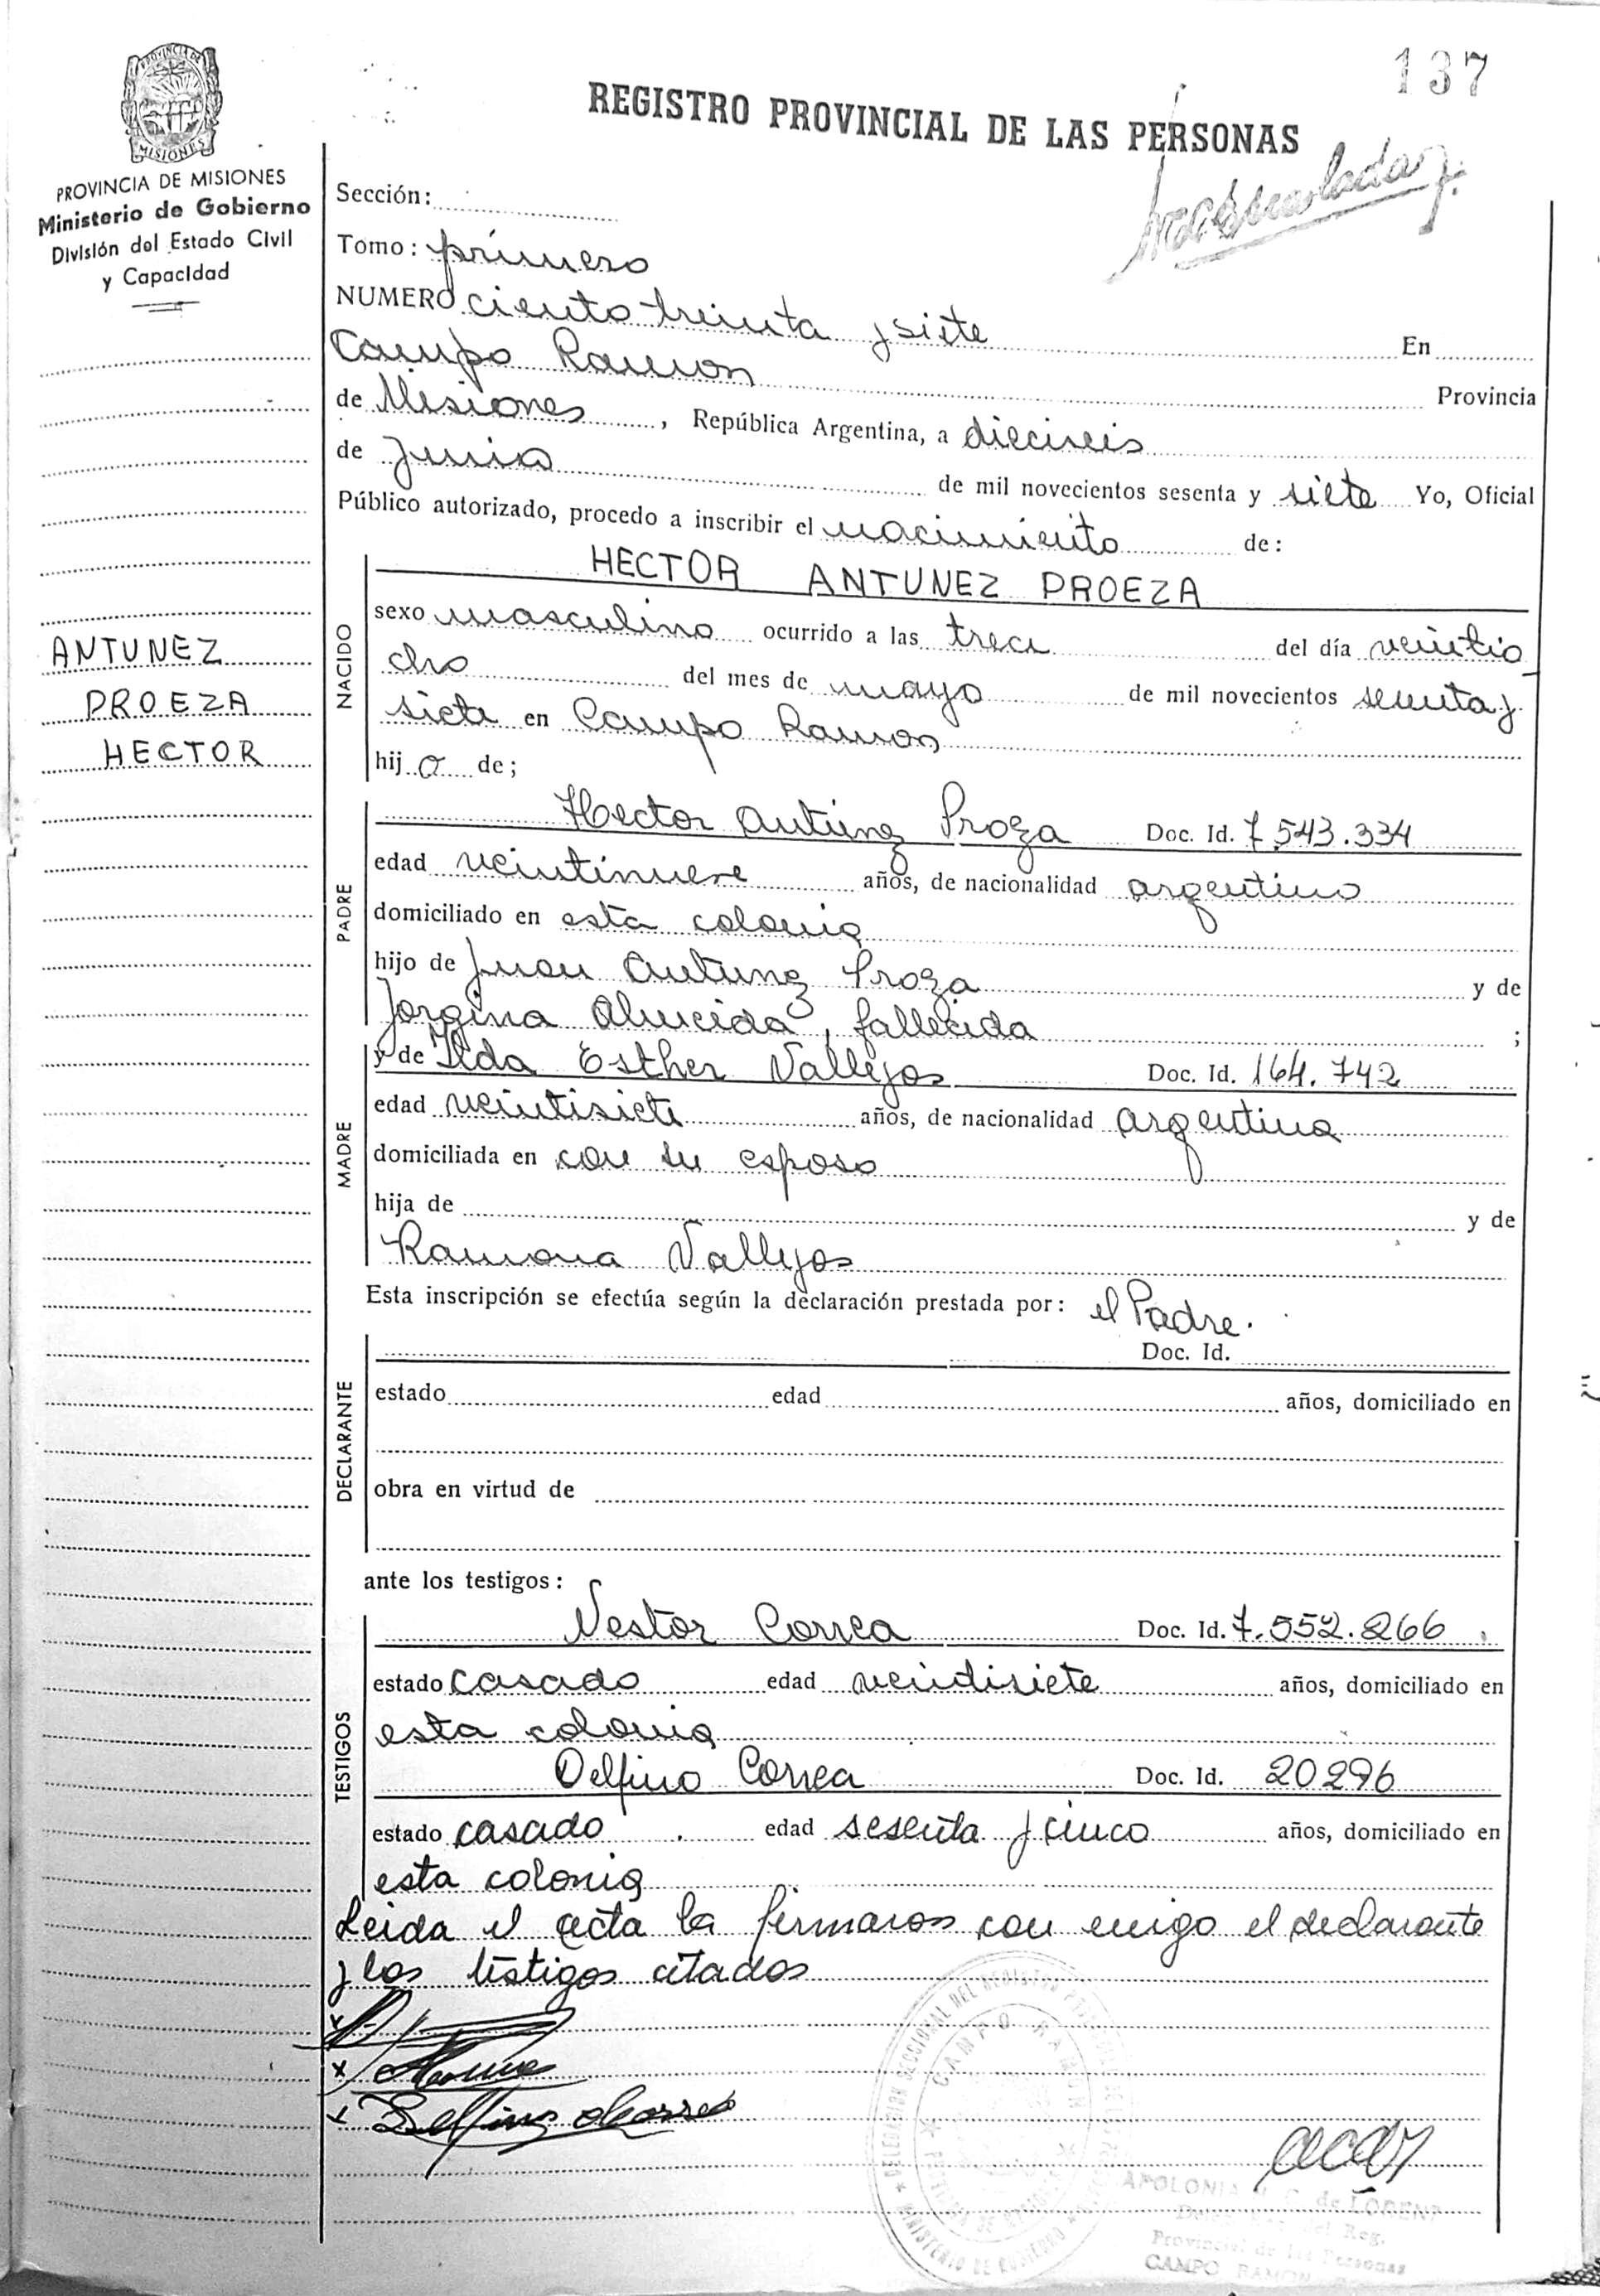 137
REGISTRO PROVINCIAL DE LAS PERSONAS
PROVINCIA DE
MISIONES
PROVINCIA DE MISIONES
Ministerio de Gobierno
División del Estado Civil
y Capacidad
Sección:
Tomo: primero
NUMERO ciento treinta y siete En
Campo Ramon Provincia
de Misiones, República Argentina, a dieciseis
de Junio de mil novecientos sesenta y siete Yo, Oficial
Público autorizado, procedo a inscribir el nacimiento de:
HECTOR ANTUNEZ PROEZA
ANTUNEZ
PROEZA
HECTOR
NACIDO
sexo masculino ocurrido a las trece del día veintio
cho del mes de mayo de mil novecientos sesenta y
siete en Campo Ramon
hijo de;
PADRE
Hector Antunez Proeza Doc. Id. 7.543.334
edad veintinueve años, de nacionalidad argentino
domiciliado en esta colonia
hijo de Juan Antunez Proeza y de
Jorgina Almeida, fallecida ;
MADRE
y de Ilda Esther Vallejos Doc. Id. 164.742
edad veintisiete años, de nacionalidad argentina
domiciliada en con su esposo
hija de y de
Ramona Vallejos
Esta inscripción se efectúa según la declaración prestada por: el Padre.
DECLARANTE
Doc. Id.
estado edad años, domiciliado en
obra en virtud de
ante los testigos:
TESTIGOS
Nestor Correa Doc. Id. 7.552.266
estado casado edad veintisiete años, domiciliado en
esta colonia
Delfino Correa Doc. Id. 20296
estado casado edad sesenta y cinco años, domiciliado en
esta colonia
Leida el acta la firmaron con migo el declarante
y los testigos citados
CAMPO RAMON
APOLONIA de LORENZ
Provincial de las Personas
CAMPO RAMON